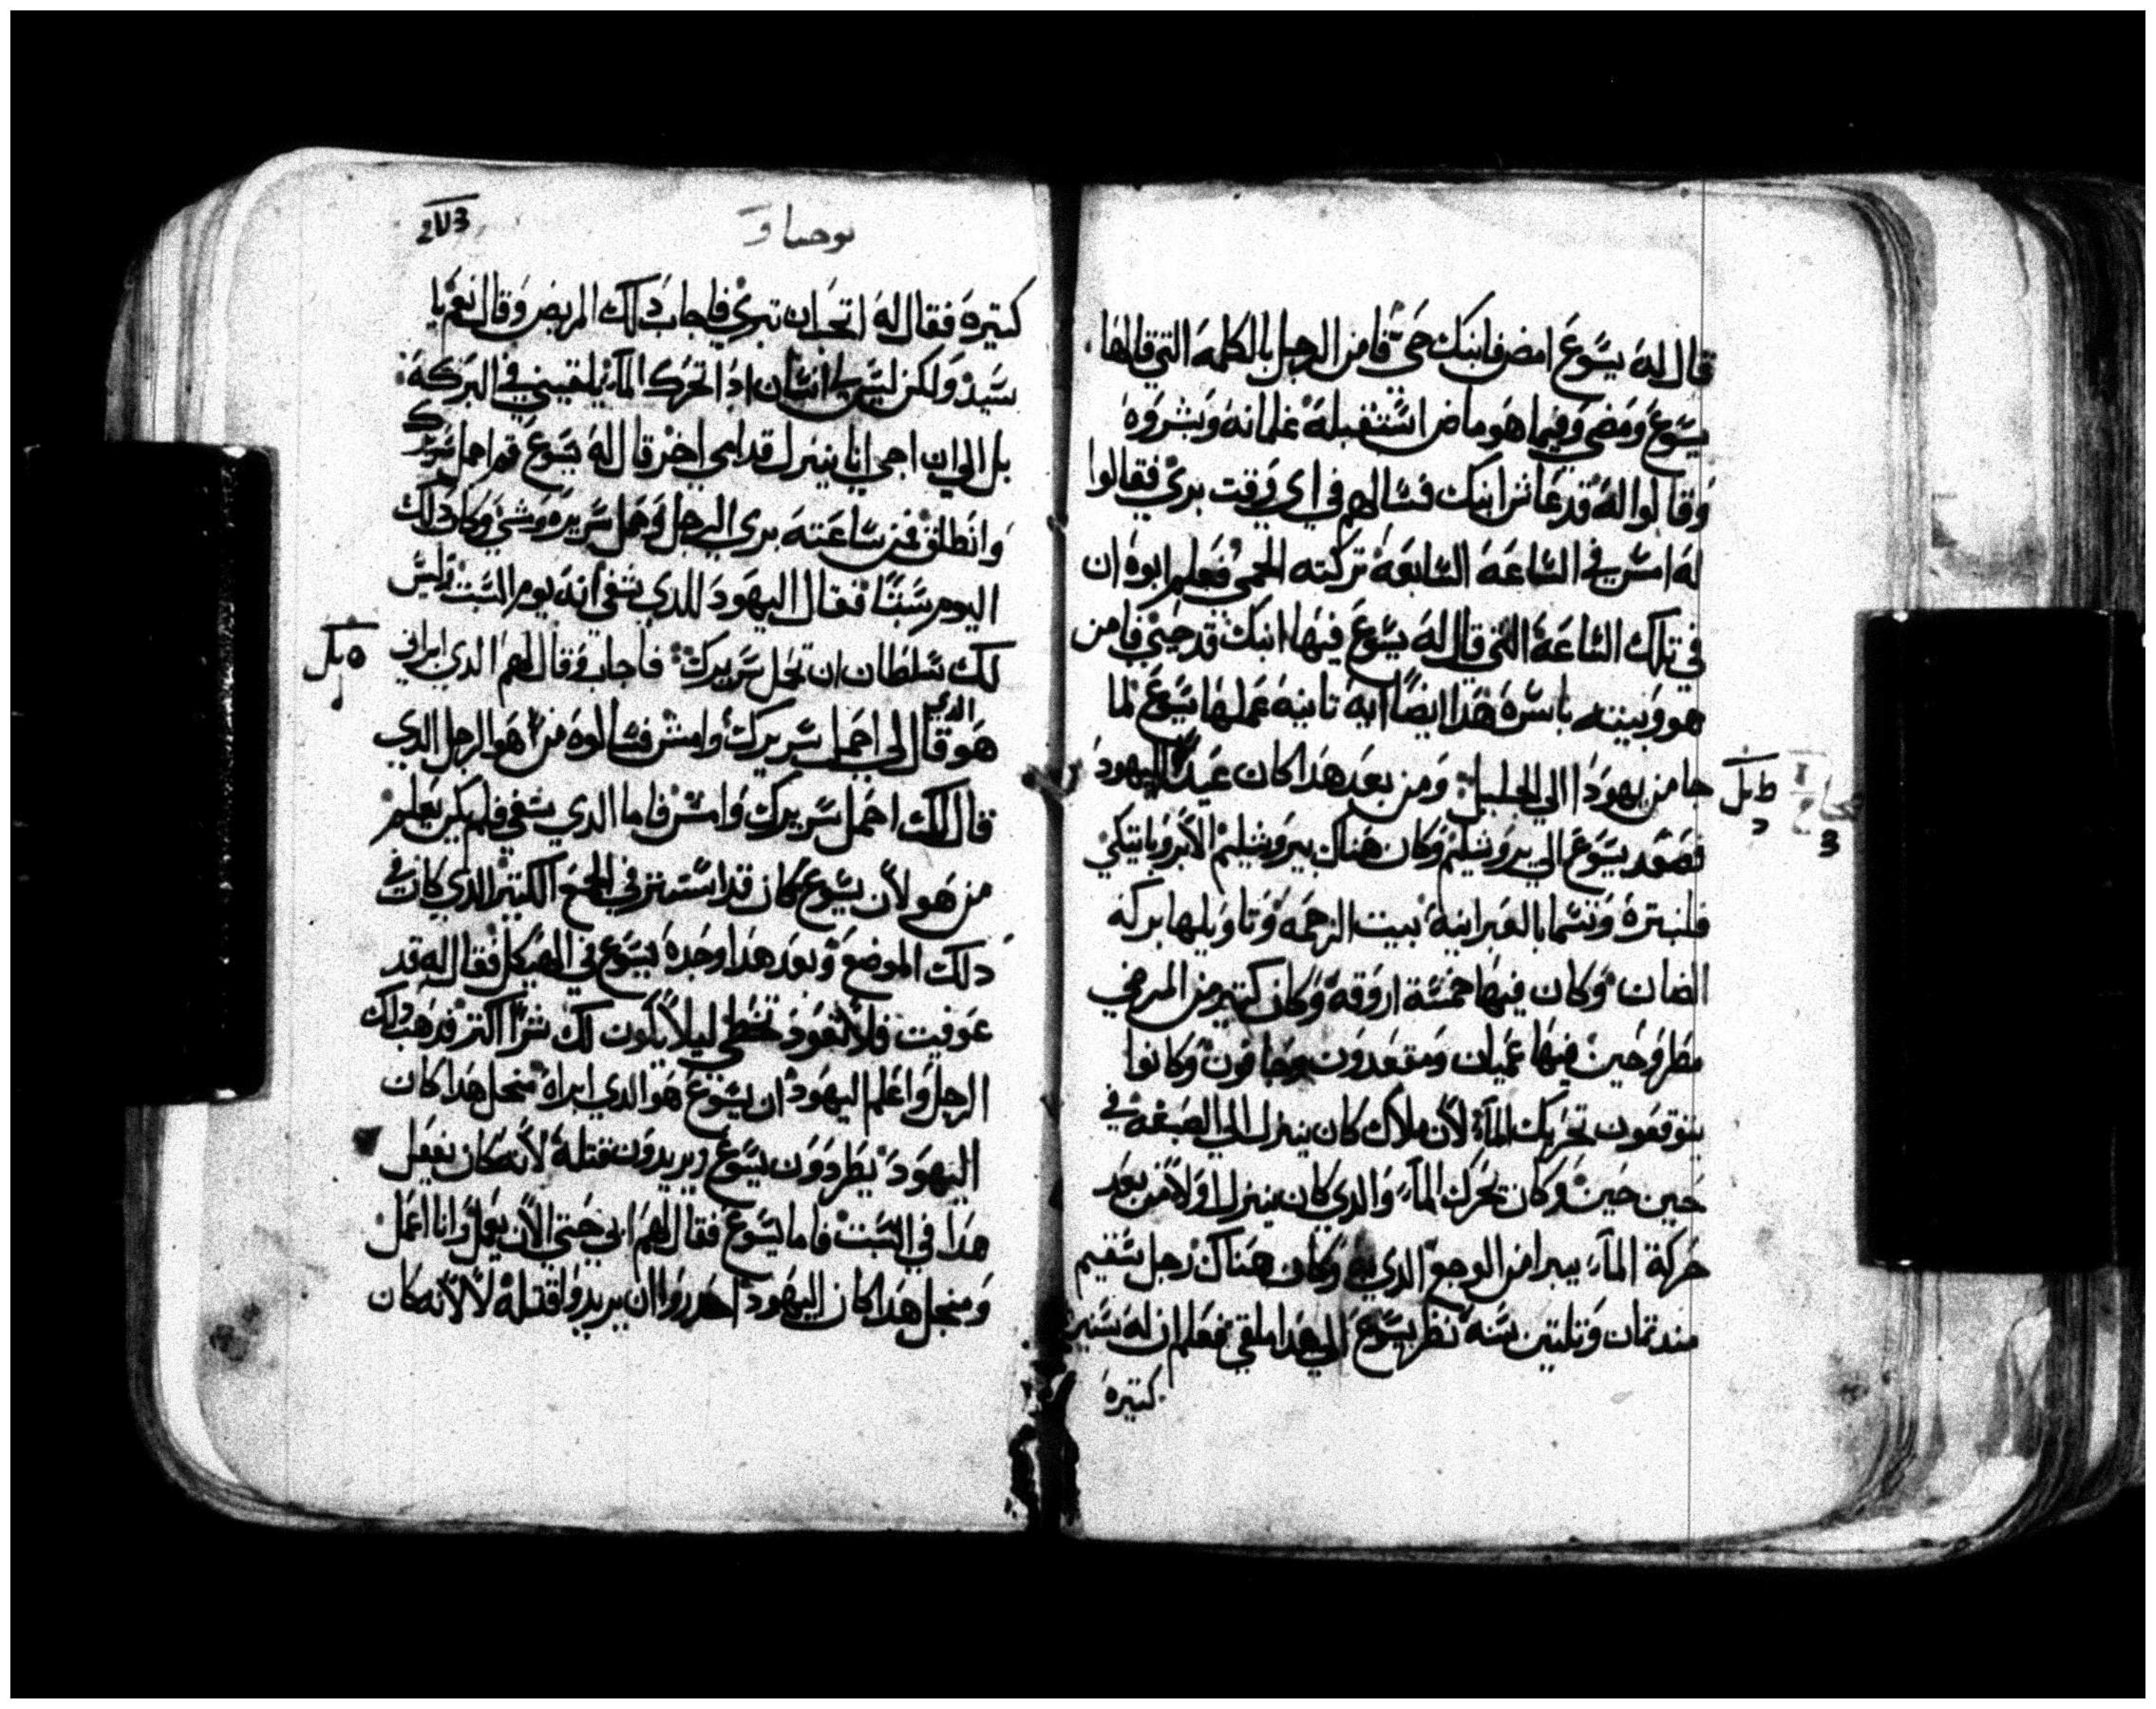 قال له يسوع امض فابنك حي فامن الرجل بالكلمه التي قالها
يسوع ومضي وفيما هو ماض استقبله غلمانه وبشروه
وقالوا له قد عاش ابنك فسالهم في اي وقت بري فقالوا
له امس في الساعه السابعه تركته الحمي فعلم ابوه ان
في تلك الساعه التي قال له يسوع فيها ابنك قد حيي فامن
هو وبيته باسره هذا ايضا ايه تانيه عملها يسوع لما
جا من يهودا الي الجليل ومن بعد هدا كان عيد اليهود
فصعد يسوع الي يروشليم وكان هناك بيروشليم الابروباتيكي
فلنبتره وتسما بالعبرانية بيت الرحمه وتاويلها بركه
الضان وكان فيها خمسة اروقه وكان كتير من المرضي
مطروحين فيها عميان ومقعدون وجافون وكانوا
يتوقعون تحريك الماء لان ملاك كان ينزل الي الصبغه في
حين حين وكان يحرك الماء والدي كان ينزل اولا من بعد
حركة الماء يبرا من الوجع الدي به وكان هناك رجل سقيم
مند تمان وتلتين سنه نظر يسوع الي هدا ملقي فعلم ان له سنين
كتيره
يوحنا
كتيره فقال له اتحب ان تبري فاجاب دلك المريض وقال نعم يا
سيد ولكن ليس لي انسان ادا تحرك الماء يلقيني في البركه
بل الي ان اجي انا ينزل قدامي اخر قال له يسوع قم احمل سريرك
وانطلق فمن ساعته بري الرجل وحمل سريره ومشي وكان دلك
اليوم سبتا فقال اليهود للدي شفي انه يوم السبت ليس
لك سلطان ان تحمل سريرك فاجاب وقال لهم الدي ابراني
هو الدي قال لي احمل سريرك وامش فسالوه من هو الرجل الدي
قال لك احمل سريرك وامش فاما الدي شفي فلم يكن يعلم
من هو لان يسوع كان قد استتر في الجمع الكتير الدي كان في
دلك الموضع وبعد هدا وجده يسوع في الهيكل فقال له قد
عوفيت فلا تعود تخطي ليلا يكون لك شرا اكتر فدهب دلك
الرجل واعلم اليهود ان يسوع هو الدي ابراه منجل هدا كان
اليهود يطردون يسوع ويريدون قتله لانه كان يفعل
هدا في السبت فاما يسوع فقال لهم ابي حتي الان يعمل وانا اعمل
ومنجل هدا كان اليهود احدروا ان يريدوا قتله لا لانه كان